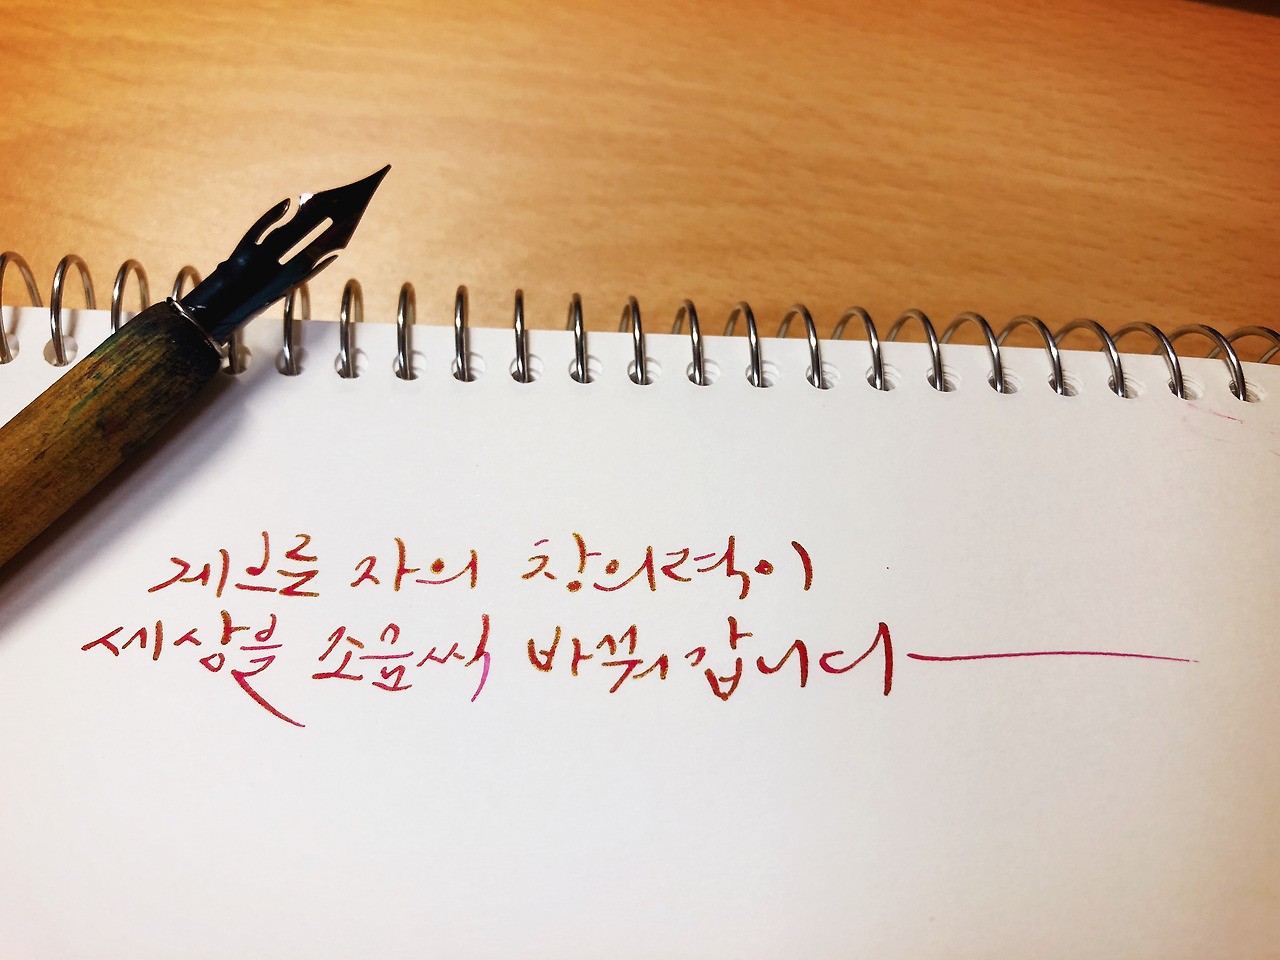 게으른 자의 창의력이
세상을 조금씩 바꿔갑니다